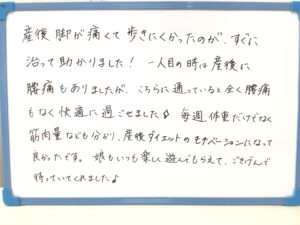 産後 脚が痛くて 歩きにくかったのが、すぐに
治って助かりました! 一人目の時は産後に
腰痛もありましたが、こちらに通っていると全く腰痛
もなく快適に過ごせました♪ 毎週、体重だけでなく
筋肉量なども分かり、産後ダイエットのモチベーションになって
良かったです。 娘もいつも楽しく遊んでもらえて、ごきげんで
待っていてくれました♪